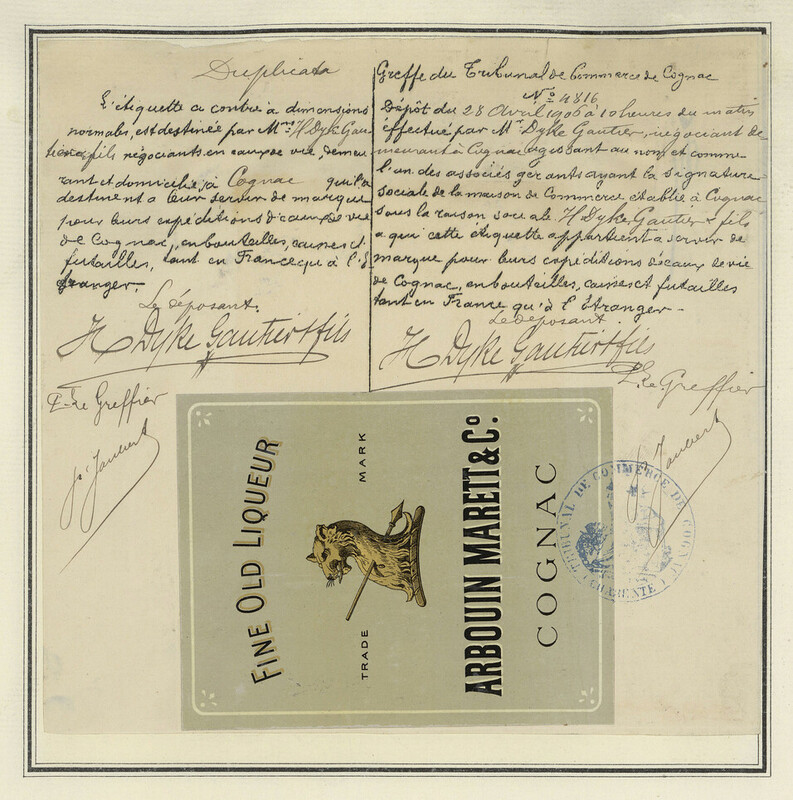 Duplicata
L'étiquette ci contre à dimensions
normales, est destinée par Mrs H Dyke Gau
tier & fils négociants en eaux de vie, demeu
rant et domiciliés, à Cognac qu'ils
destinent à leur servir de marque
pour leurs expéditions d'eaux de vie
de Cognac, en bouteilles, caisses et
futailles, tant en France qu'à l'é
tranger.
Le déposant.
H Dyke Gautier & fils
Le Greffier
Greffe du Tribunal de Commerce de Cognac
No 4816
Dépôt du 28 Avril 1906 à 10 heures du matin
effectué par Mr Dyke Gautier, négociant de
meurant à Cognac agissant au nom et comme
l'un des associés gérants ayant la signature
sociale de la maison de Commerce établie à Cognac
sous la raison sociale H Dyke Gautier & fils
a qui cette étiquette appartient a servir de
marque pour leurs expéditions d'eaux de vie
de Cognac, en bouteilles, caisses et futailles
tant en France qu'à l'Etranger -
Le déposant.
H Dyke Gautier & fils
Le Greffier
FINE OLD LIQUEUR
TRADE MARK
ARBOUIN MARETT & Co
COGNAC
TRIBUNAL DE COMMERCE DE COGNAC
(CHARENTE)